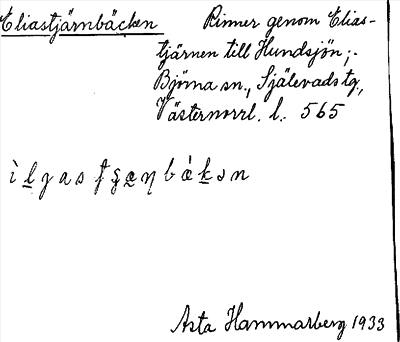 Eliastjärnbäcken Rinner genom Elias-
tjärnen till Hundsjön;.
Björna sn., Själevads tg.,
Västernorrl. l. 565
Asta Hammarberg 1933